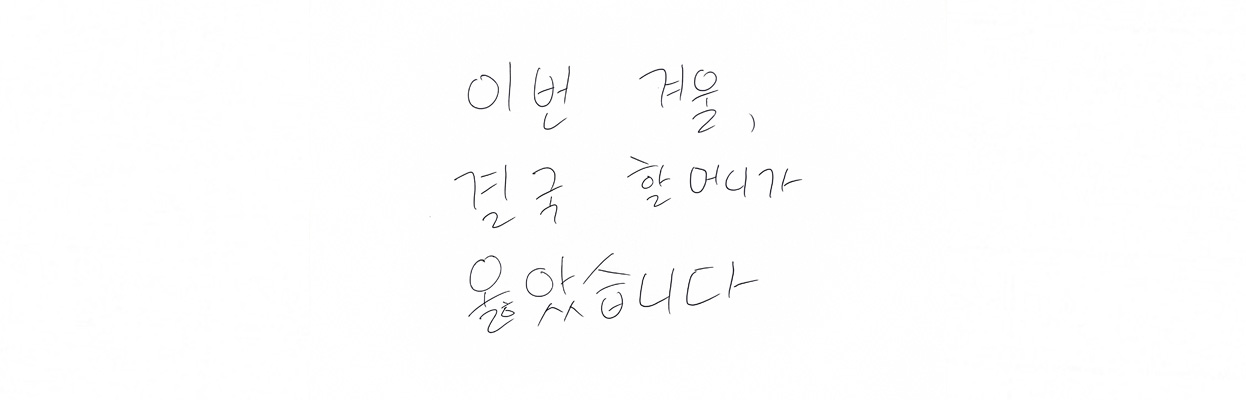 이번 겨울,
결국 할머니가
옳았습니다